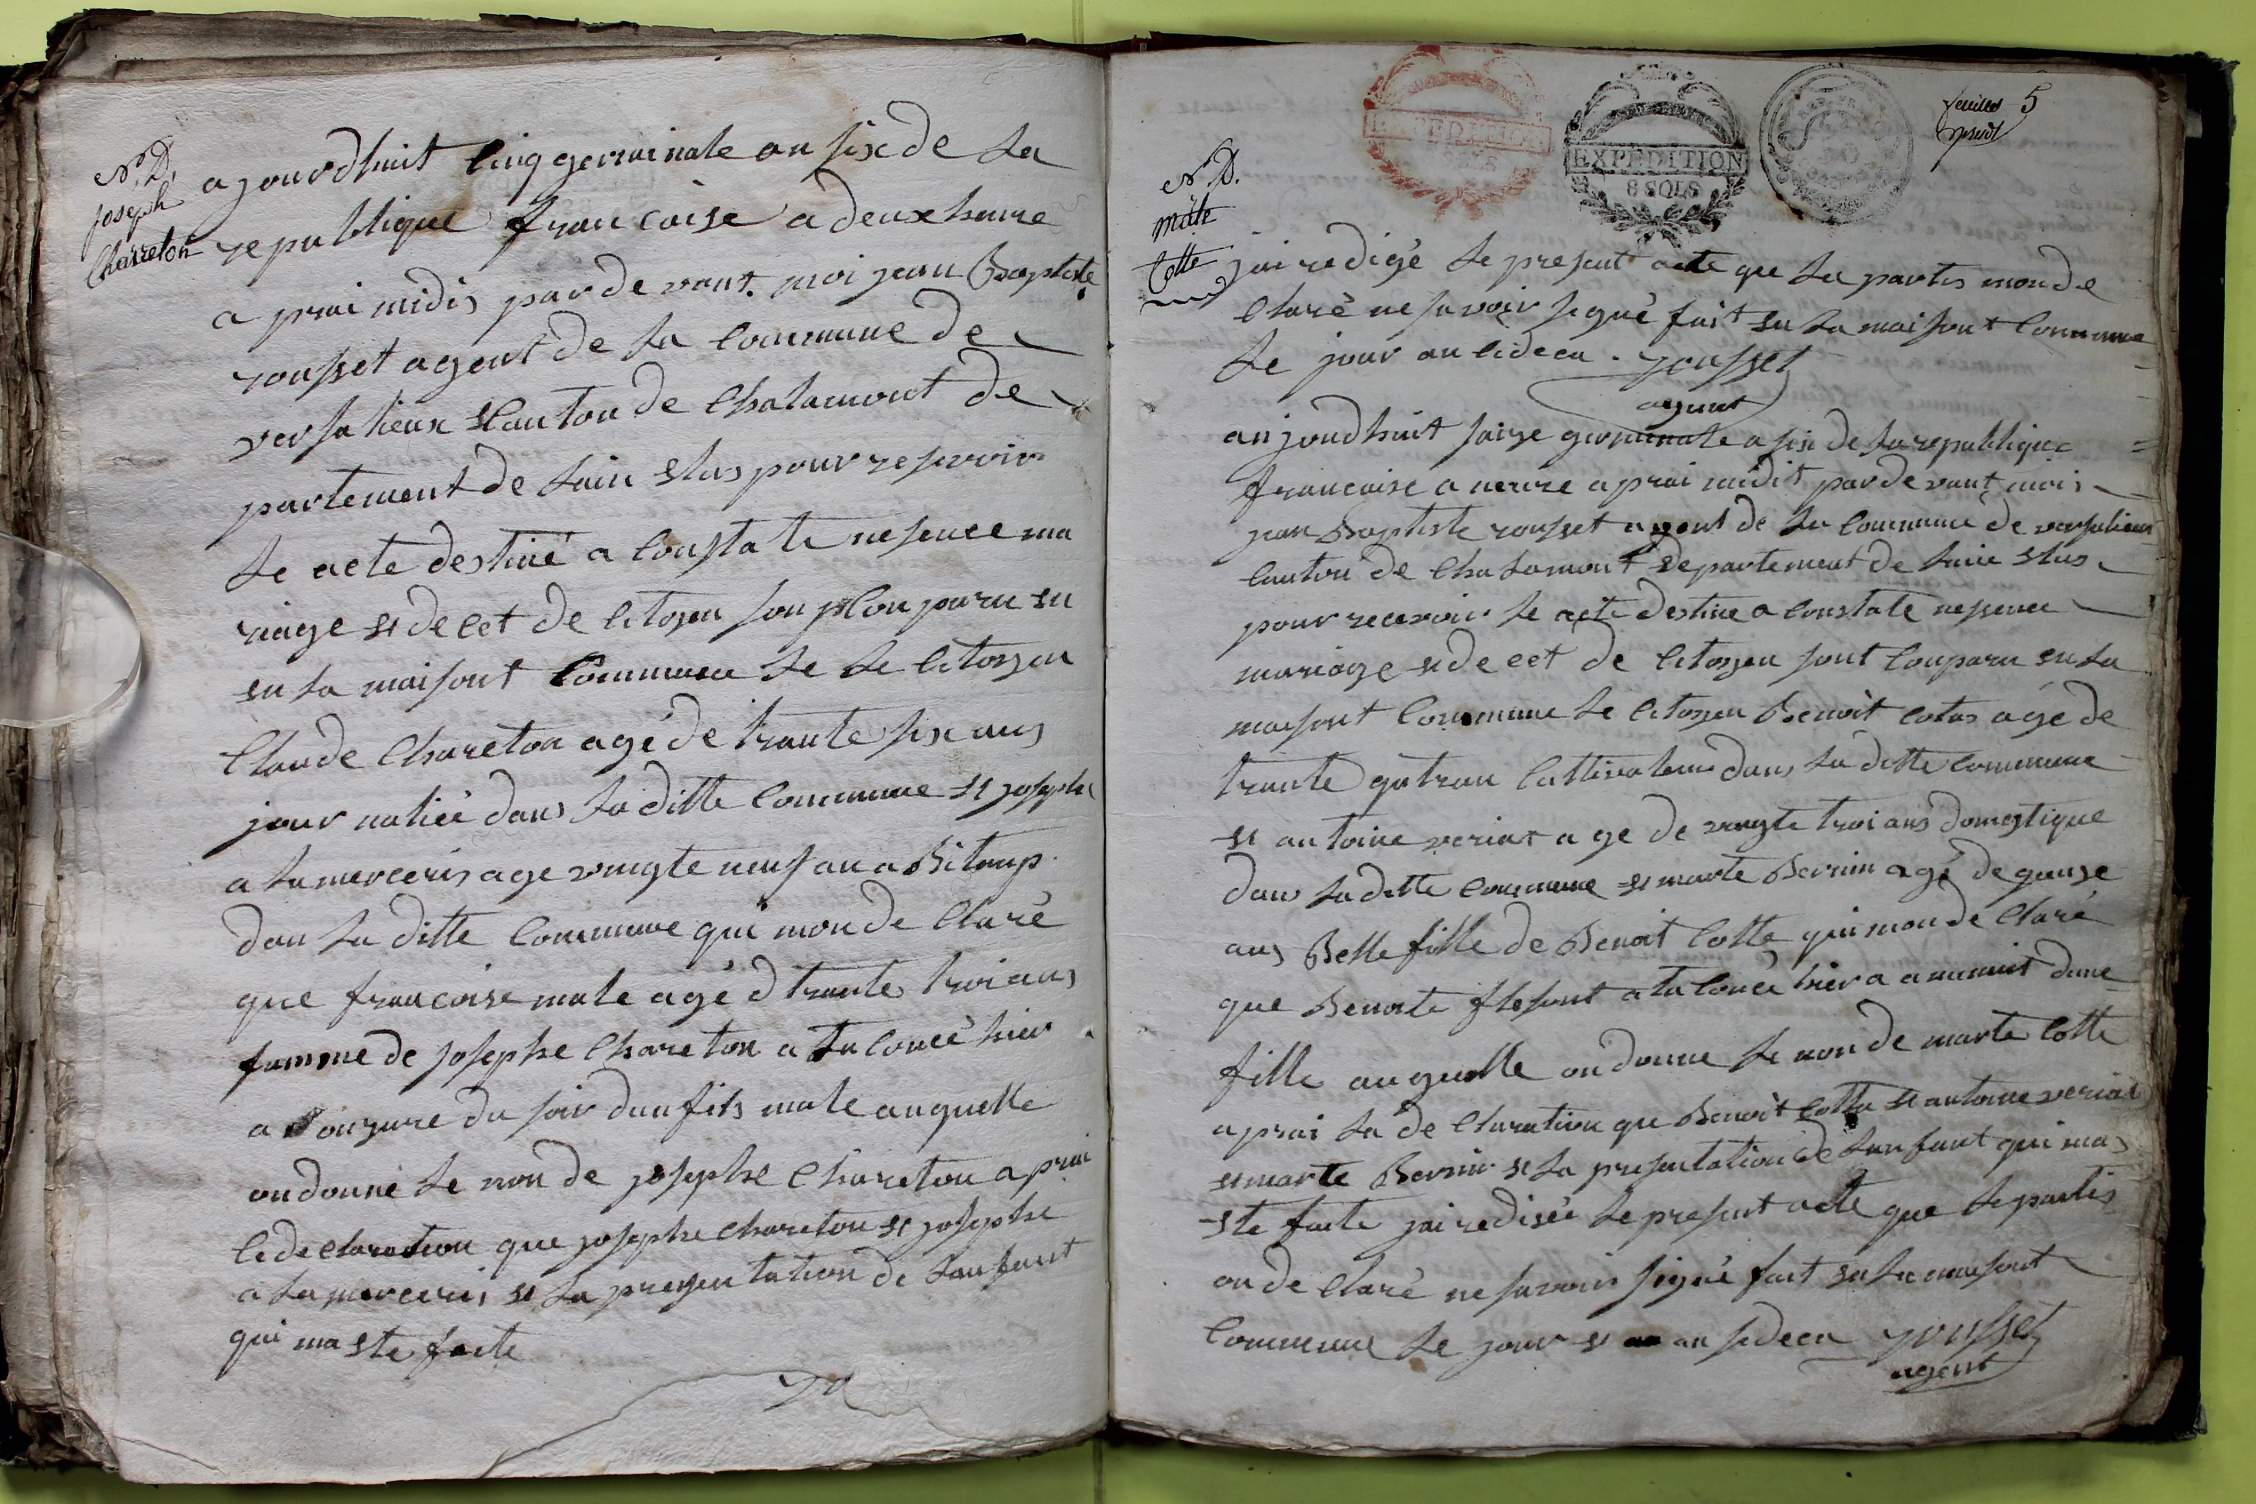 N.D.
joseph
Charreton
ajourdhuit cinq germinale an six de la
republique francoise a deux heure
a prai midis parde vant moi jean Baptiste
rousset agent de la commune de
versalieux canton de chalamont de
partement de lain elus pour reservoir
le acte destiné a constate nesence ma
riage et decet de citoyen son conparu en
en la maisont commune le le citoyen
claude chareton agé de trante six ans
journatiée dans la ditte commune et josephe
a la merceris age vingte neuf an abitemp
dan la ditte commune qui mon de claré
que francoise mate agé d trante troi ans
famme de josephe chareton a la couceé hier
a onzure du soir dun fils male auquelle
on donne le non de josephe chareton a prai
le declaration que josephe chareton et josephe
a la merceris et la prezentation de lanfant
qui ma ete faite
feuillet 5
EXPÉDITION
EXPÉDITION
8 SOLS
N.D.
mate
Cotte
jai redigé le present acte que la partis mon de
claré ne savoir signé fait en la maisont commune
le jour an cideça. rousset
agent
anjoudhuit saize germinale a six de la republique
francaise a neure a prai midit parde vant moi
jean Baptiste rousset agent de la commune de versalieux
canton de chalamont departement de lain elus
pour recevoir le acte destine a constate nessence
mariage et decet de citoyen sont conparu en la
maisont commune le citoyen Benoit cotes agé de
trante qatran cultivateur dans la ditte commune
et antoine veriat age de vingte troi ans domestique
dans la ditte commune et marte Bernin agé de quinze
ans Belle fille de Benoit Cotte qui mon de claré
que Benoite flesont a la couceé hier a a minuit dune
fille auquelle on donne le non de marte Cotte
a prai la de claration que Benoit Cotte et antoine veriat
et marte Bernin et la presentation de lanfant qui ma
ete faite jai redisée le present acte que le partis
on de claré ne savoir signé fait en la maisont
commune le jour et an sideça rousset
agent